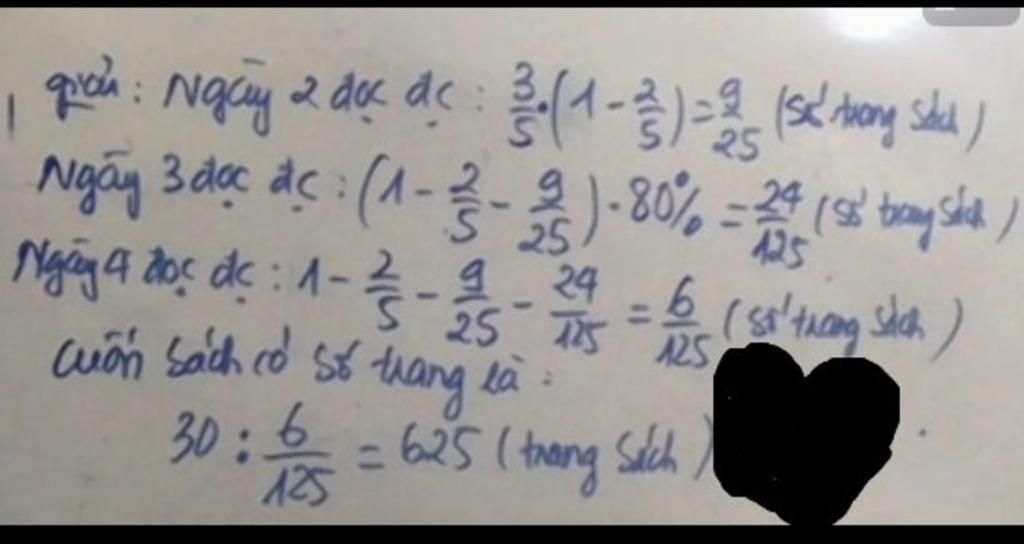 giải: Ngày 2 đọc đc: 3/5·(1 - 2/5) = 9/25 (số trang sách)
Ngày 3 đọc đc: (1 - 2/5 - 9/25)·80% = 24/125 (số trang sách)
Ngày 4 đọc đc: 1 - 2/5 - 9/25 - 24/125 = 6/125 (số trang sách)
cuốn sách có số trang là:
30 : 6/125 = 625 (trang sách)